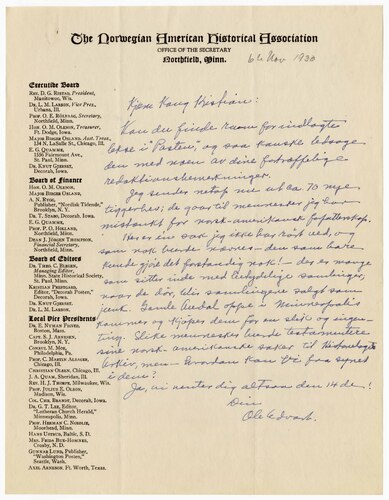 The Norwegian American Historical Association
OFFICE OF THE SECRETARY
Northfield, Minn.
6te Nov 1930
Executive Board
REV. D. G. RISTAD, President,
Manitowoc, Wis.
DR. L. M. LARSON, Vice Pres.,
Urbana, Ill.
PROF. O. E. RÖLVAAG, Secretary,
Northfield, Minn.
HON. O. M. OLESON, Treasurer,
Ft. Dodge, Iowa.
MAJOR BIRGER OSLAND, Asst. Treas.
134 N. LaSalle St., Chicago, Ill.
E. G. QUAMME,
1156 Fairmount Ave.,
St. Paul, Minn.
DR. KNUT GJERSET,
Decorah, Iowa.
Board of Finance
HON. O. M. OLESON,
MAJOR BIRGER OSLAND,
A. N. RYGG,
Publisher, "Nordisk Tidende,"
Brooklyn, N. Y.
DR. T. STABO, Decorah, Iowa.
E. G. QUAMME,
St. Paul, Minn.
PROF. P. O. HOLLAND,
Northfield, Minn.
DEAN J. JÖRGEN THOMPSON,
Financial Secretary,
Northfield, Minn.
Board of Editors
DR. THEO. C. BLEGEN,
Managing Editor,
Minn. State Historical Society,
St. Paul, Minn.
KRISTIAN PRESTGARD,
Editor, "Decorah Posten,"
Decorah, Iowa.
DR. KNUT GJERSET,
DR. L. M. LARSON.
Local Vice Presidents
DR. E. NYMAN FIGVED,
Boston, Mass.
CAPT. S. J. ARNESEN,
Brooklyn, N. Y.
CONSUL M. MOE,
Philadelphia, Pa.
PROF. C. MARTIN ALSAGER,
Chicago, Ill.
CHRISTIAN OLSEN, Chicago, Ill.
J. A. QUAM, Sheridan, Ill.
REV. H. J. THORPE, Milwaukee, Wis.
PROF. JULIUS E. OLSON,
Madison, Wis.
COL. CHR. BRANDT, Decorah, Iowa.
DR. G. T. LEE, Editor,
"Lutheran Church Herald,"
Minneapolis, Minn.
PROF. HERMAN C. NORDLIE,
Moorhead, Minn.
HANS USTRUD, Baltic, S. D.
MRS. FRIDA BUE-HOMNES,
Crosby, N. D.
GUNNAR LUND, Publisher,
"Washington Posten,"
Seattle, Wash.
AXEL ARNESON, Ft. Worth, Texas.
Kjære Kong Kristian:
Kan du finde rum for indlagte
i "Posten", og saa kanske ledsage
den med noen av dine fortræffelige
redaktionsbemerkninger.
Jeg sender netop nu ut ca. 70 nye
tiggerbrev; de gaar til mennesker jeg har
mistænkt for norsk-amerikansk
Her er en sak jeg ikke har rørt ved, og
som nok burde nævnes – den som bare
kunde gjøre det forstandig nok! – der er mange
som sitter inde med værdifulde samlinger,
naar de dør, blir samlingerne solgt som
junk. Gamle Audal oppe i Minneapolis
kommer og kjøper dem for en slik og ingen-
ting. Slike mennesker burde testamentere
sine norsk-amerikanske saker til
Arkiv, men – hvordan kan vi faa sagt
i dem?
Ja, vi venter dig altsaa den 14 de!
Din
Ole Edvart.